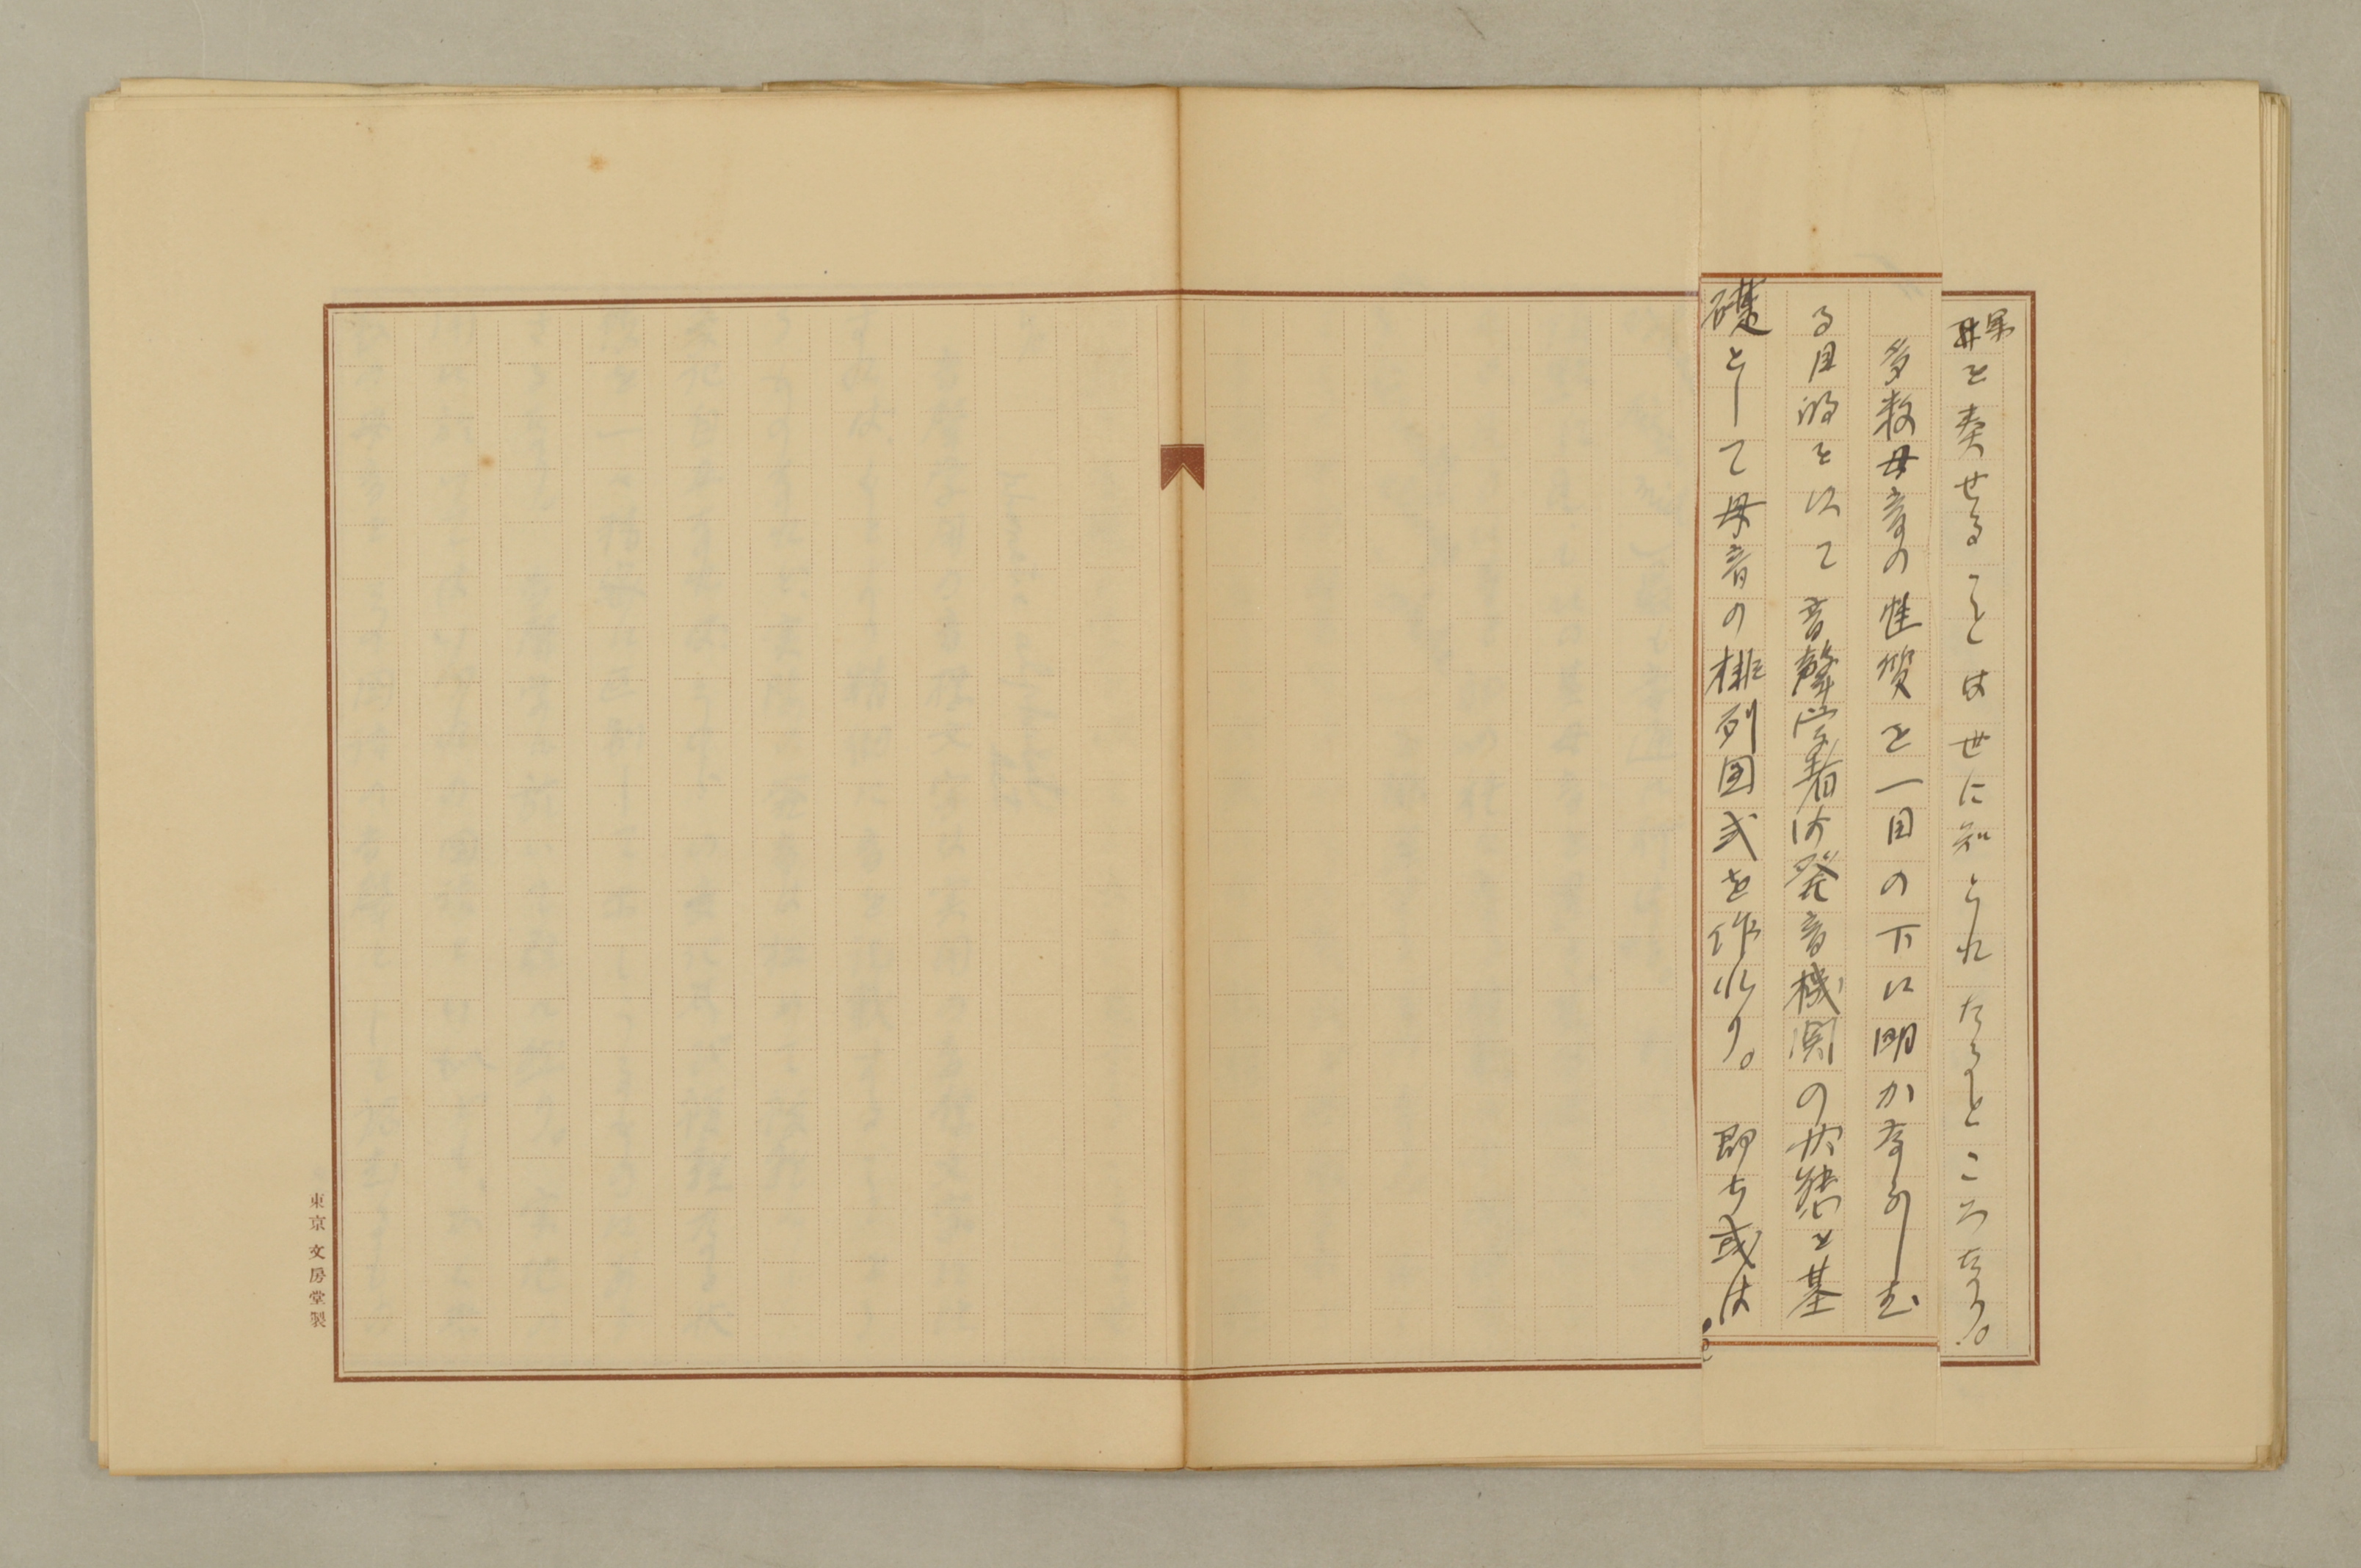 果を奏せることは世に知られたるところなり。
多数母音の性質を一目の下に明かならしむ
る目的を以て音聲学者は発音機関の状態を基
礎として母音の排列図式を作れり。即ち或は
東京文房堂製